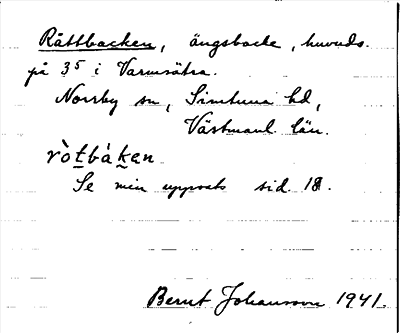 Råttbacken, ängsbacke, huvuds.
på 3⁵ i Varmsätra.
Norrby sn, Simtuna hd,
Västmanl. län.
ròtbákен
Se min uppsats sid. 18.
Bernt Johansson 1941.